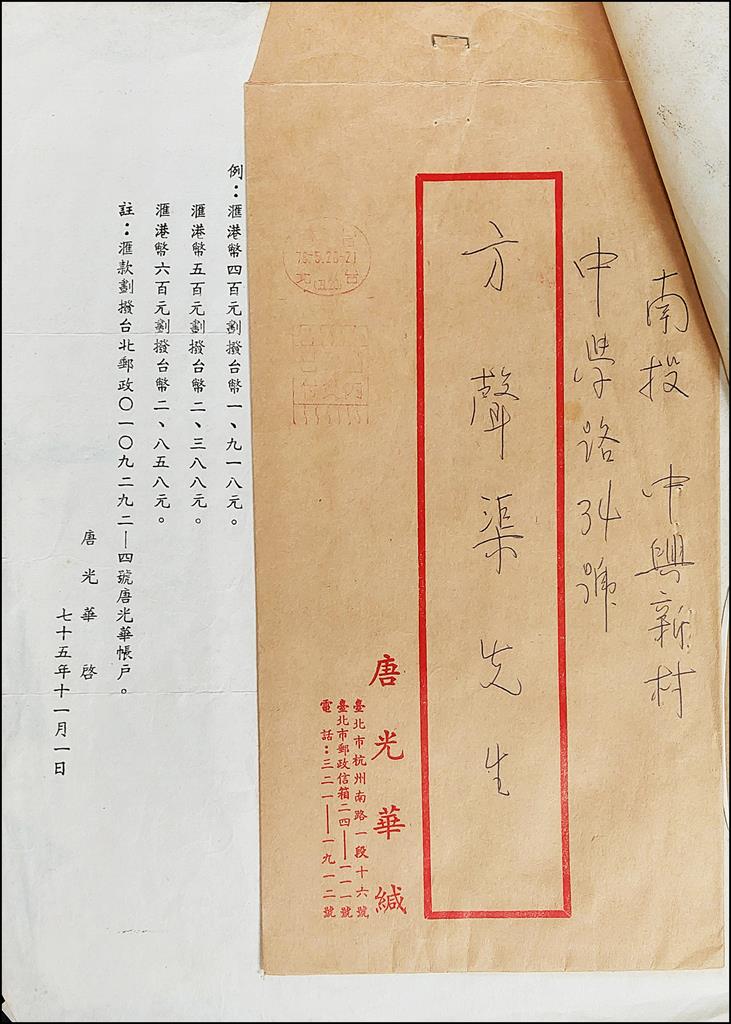 南投 中興新村
中学路34號
方聲渠先生
唐光華緘
臺北市杭州南路一段十六號
臺北市郵政信箱二四——一一一號
電話：三二一——一九一二號
例：滙港幣四百元劃撥台幣一、九一八元。
滙港幣五百元劃撥台幣二、三八八元。
滙港幣六百元劃撥台幣二、八五八元。
註：滙款劃撥台北郵政〇一〇九二九二—四號唐光華帳戶。
唐光華啓
七十五年十一月一日